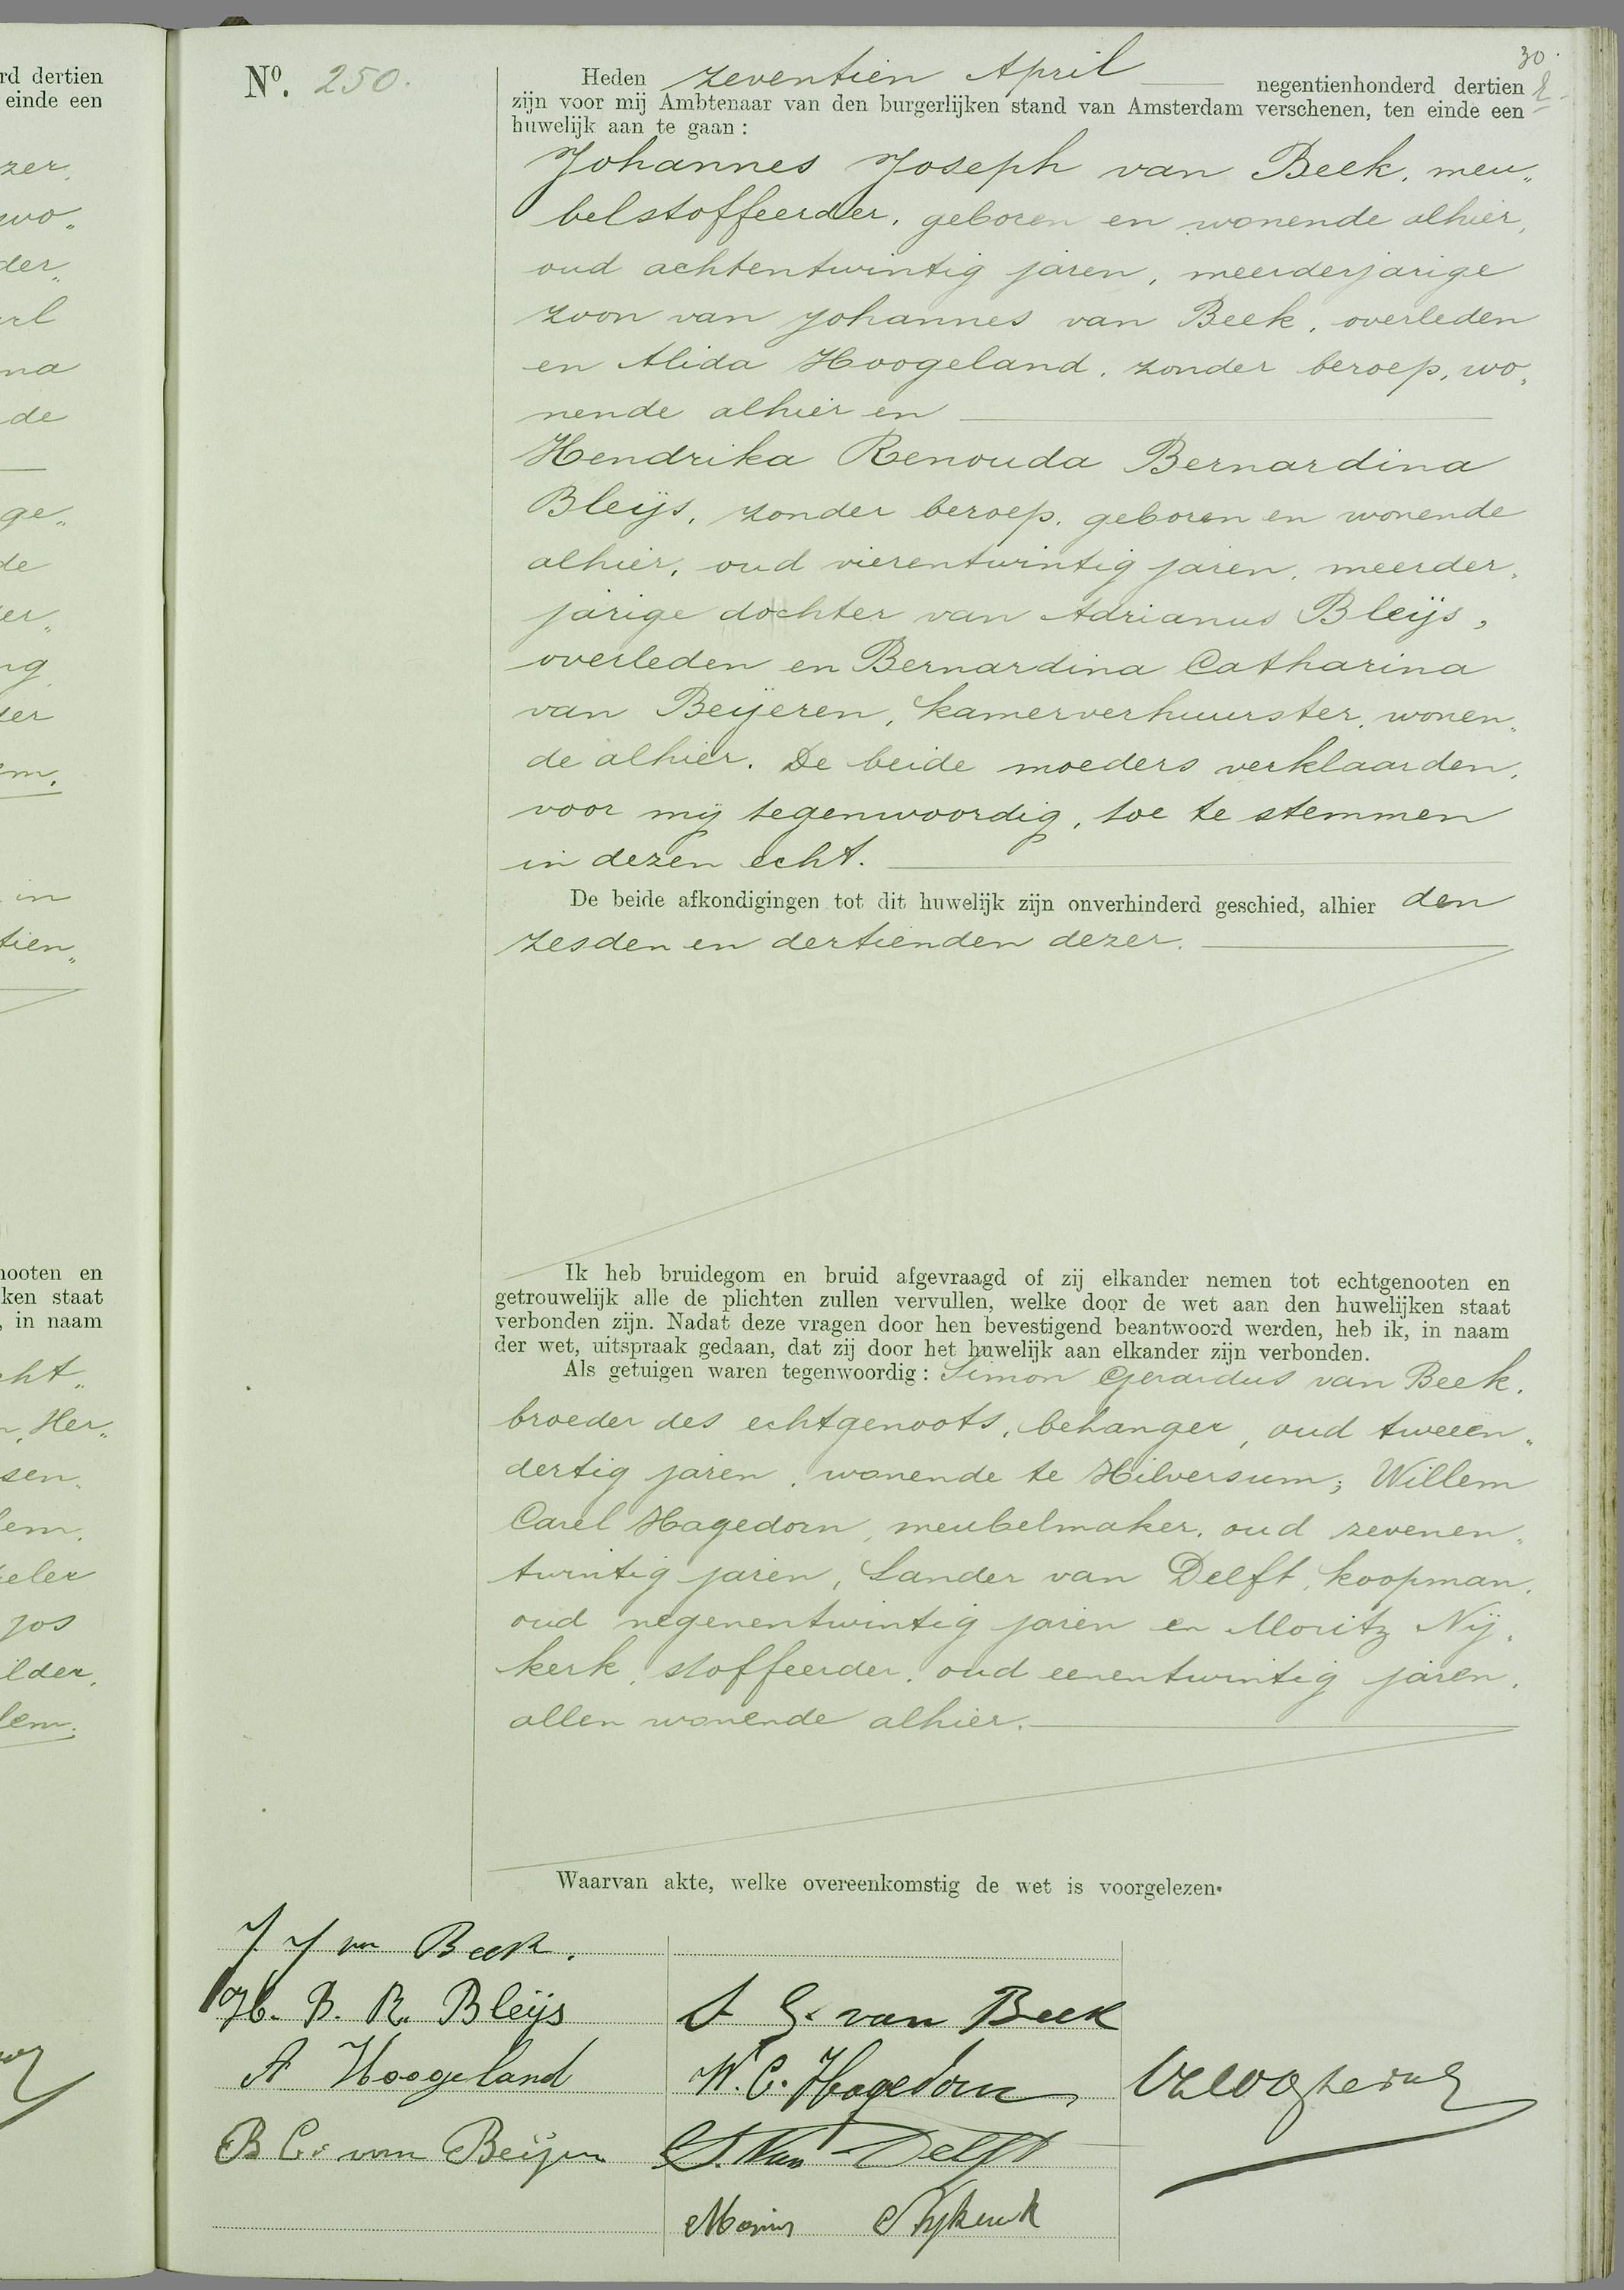 rd dertien
einde een
zer,
wo„
der„
rl
na
de
ge„
de
er„
ng
der
em.
in
tien„
nooten en
ken staat
, in naam
cht„
n, Her„
sen,
lem,
eler
jos
ilder,
lem.
30.
Nº. 250.
Heden zeventien April negentienhonderd dertien
zijn voor mij Ambtenaar van den burgerlijken stand van Amsterdam verschenen, ten einde een
huwelijk aan te gaan:
Johannes Joseph van Beek, meu„
belstoffeerder, geboren en wonende alhier,
oud achtentwintig jaren, meerderjarige
zoon van Johannes van Beek, overleden
en Alida Hoogeland, zonder beroep, wo„
nende alhier en
Hendrika Renouda Bernardina
Bleijs, zonder beroep, geboren en wonende
alhier, oud vierentwintig jaren, meerder„
jarige dochter van Adrianus Bleijs,
overleden en Bernardina Catharina
van Beijeren, kamerverhuurster, wonen„
de alhier. De beide moeders verklaarden,
voor mij tegenwoordig, toe te stemmen
in dezen echt.
De beide afkondigingen tot dit huwelijk zijn onverhinderd geschied, alhier den
zesden en dertienden dezer.
Ik heb bruidegom en bruid afgevraagd of zij elkander nemen tot echtgenooten en
getrouwelijk alle de plichten zullen vervullen, welke door de wet aan den huwelijken staat
verbonden zijn. Nadat deze vragen door hen bevestigend beantwoord werden, heb ik, in naam
der wet, uitspraak gedaan, dat zij door het huwelijk aan elkander zijn verbonden.
Als getuigen waren tegenwoordig: Simon Gerardus van Beek,
broeder des echtgenoots, behanger, oud tweeën„
dertig jaren, wonende te Hilversum; Willem
Carel Hagedorn, meubelmaker, oud zevenen„
twintig jaren, Sander van Delft, koopman,
oud negenentwintig jaren en Moritz Nij„
kerk, stoffeerder, oud eenentwintig jaren,
allen wonende alhier.
Waarvan akte, welke overeenkomstig de wet is voorgelezen.
J J van Beek.
H. B. R. Bleijs
A Hoogeland
B C. van Beijren
S G. van Beek
W. C. Hagedorn
S. van Delft
Nijkerk